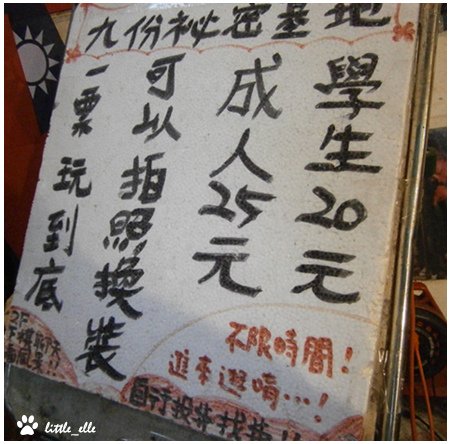 九份祕密基地
學生20元
成人25元
可以拍照換裝
一票玩到底
不限時間！
進來逛唷…！
little_elle